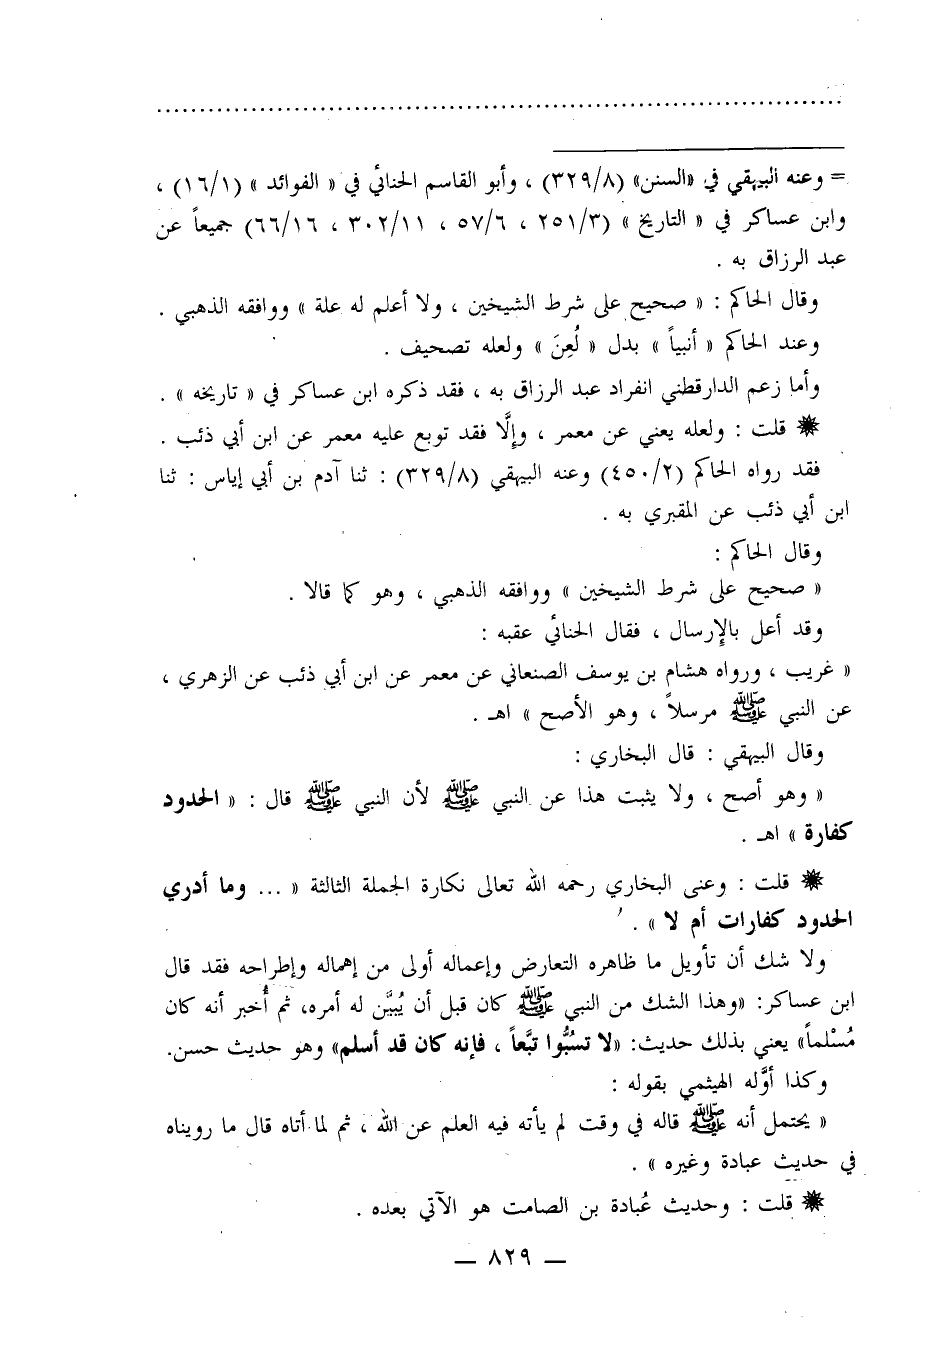 = وعنه البيهقي في «السنن» (٣٢٩/٨) ، وأبو القاسم الحنائي في « الفوائد » (١٦/١) ،
وابن عساكر في « التاريخ » (٢٥١/٣ ، ٥٧/٦ ، ٣٠٢/١١ ، ٦٦/١٦) جميعاً عن
عبد الرزاق به .
وقال الحاكم : « صحيح على شرط الشيخين ، ولا أعلم له علة » ووافقه الذهبي .
وعند الحاكم « أنبياً » بدل « لُعِنَ » ولعله تصحيف .
وأما زعم الدارقطني انفراد عبد الرزاق به ، فقد ذكره ابن عساكر في « تاريخه » .
❋ قلت : ولعله يعني عن معمر ، وإلَّا فقد توبع عليه معمر عن ابن أبي ذئب .
فقد رواه الحاكم (٤٥٠/٢) وعنه البيهقي (٣٢٩/٨) : ثنا آدم بن أبي إياس : ثنا
ابن أبي ذئب عن المقبري به .
وقال الحاكم :
« صحيح على شرط الشيخين » ووافقه الذهبي ، وهو كما قالا .
وقد أعل بالإرسال ، فقال الحنائي عقبه :
« غريب ، ورواه هشام بن يوسف الصنعاني عن معمر عن ابن أبي ذئب عن الزهري ،
عن النبي ﷺ مرسلاً ، وهو الأصح » اهـ .
وقال البيهقي : قال البخاري :
« وهو أصح ، ولا يثبت هذا عن النبي ﷺ لأن النبي ﷺ قال : « الحدود
كفارة » اهـ .
❋ قلت : وعنى البخاري رحمه الله تعالى نكارة الجملة الثالثة « ... وما أدري
الحدود كفارات أم لا » .
ولا شك أن تأويل ما ظاهره التعارض وإعماله أولى من إهماله وإطراحه فقد قال
ابن عساكر: «وهذا الشك من النبي ﷺ كان قبل أن يُبيَّن له أمره، ثم أُخبر أنه كان
مُسْلماً» يعني بذلك حديث: «لا تسُبُّوا تبَّعاً ، فإنه كان قد أسلم» وهو حديث حسن.
وكذا أوَّله الهيثمي بقوله :
« يحتمل أنه ﷺ قاله في وقت لم يأته فيه العلم عن الله ، ثم لما أتاه قال ما رويناه
في حديث عبادة وغيره » .
❋ قلت : وحديث عُبادة بن الصامت هو الآتي بعده .
— ٨٢٩ —